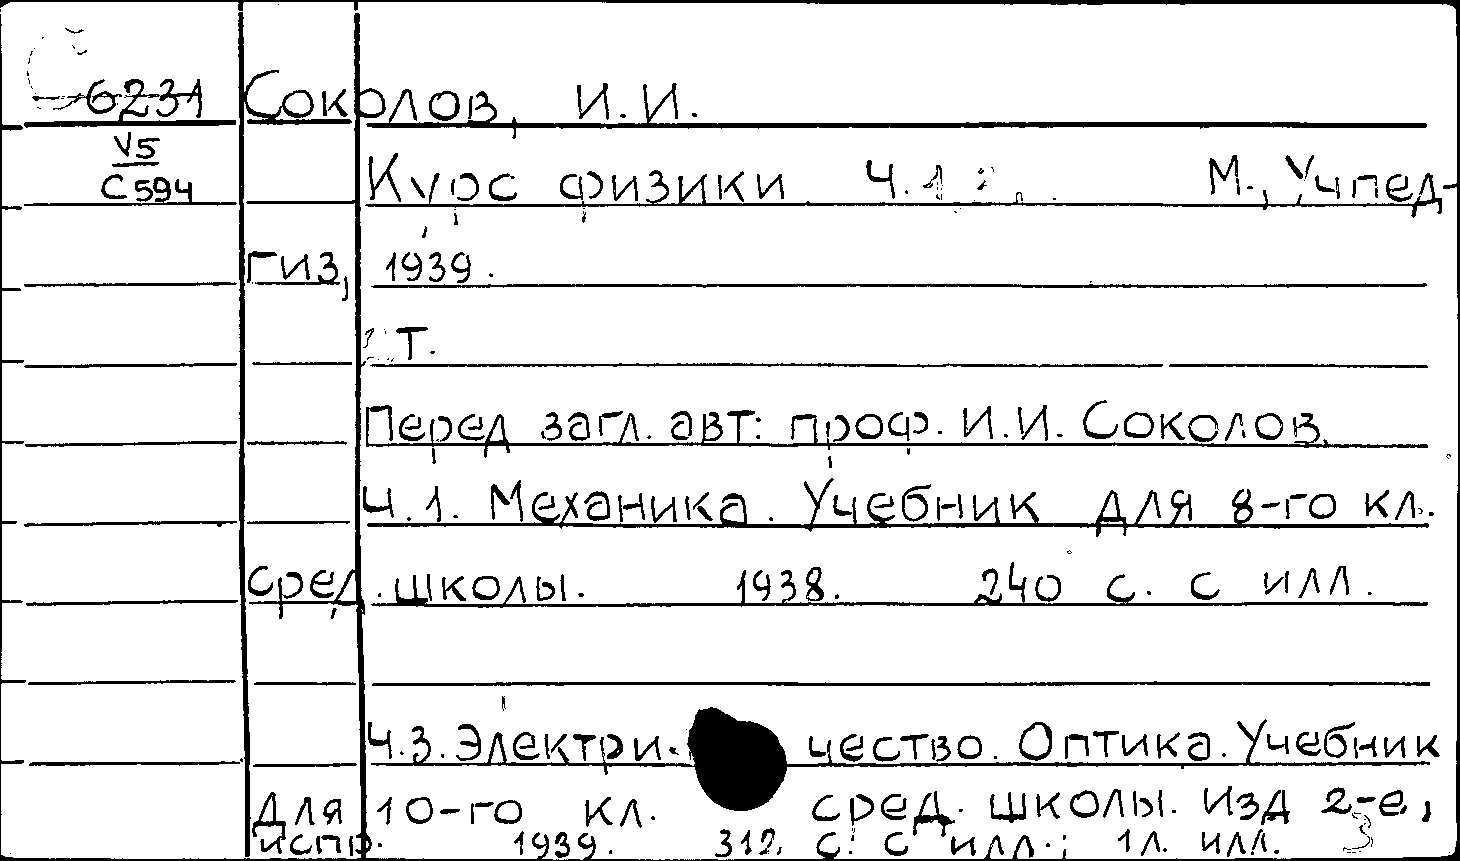 6231 Соколов, И.И.
V5
С594
Курс физики Ч.1 М., Учпед-
гиз, 1939.
т.
Перед загл. авт: проф. И.И. Соколов.
Ч.1. Механика. Учебник для 8-го кл.
сред. школы. 1938. 240 с. с илл.
Ч.3. Электри- чество. Оптика. Учебник
для 10-го кл. сред. школы. Изд 2-е,
испр. 1939. 312. с. с илл.; 1 л. илл.